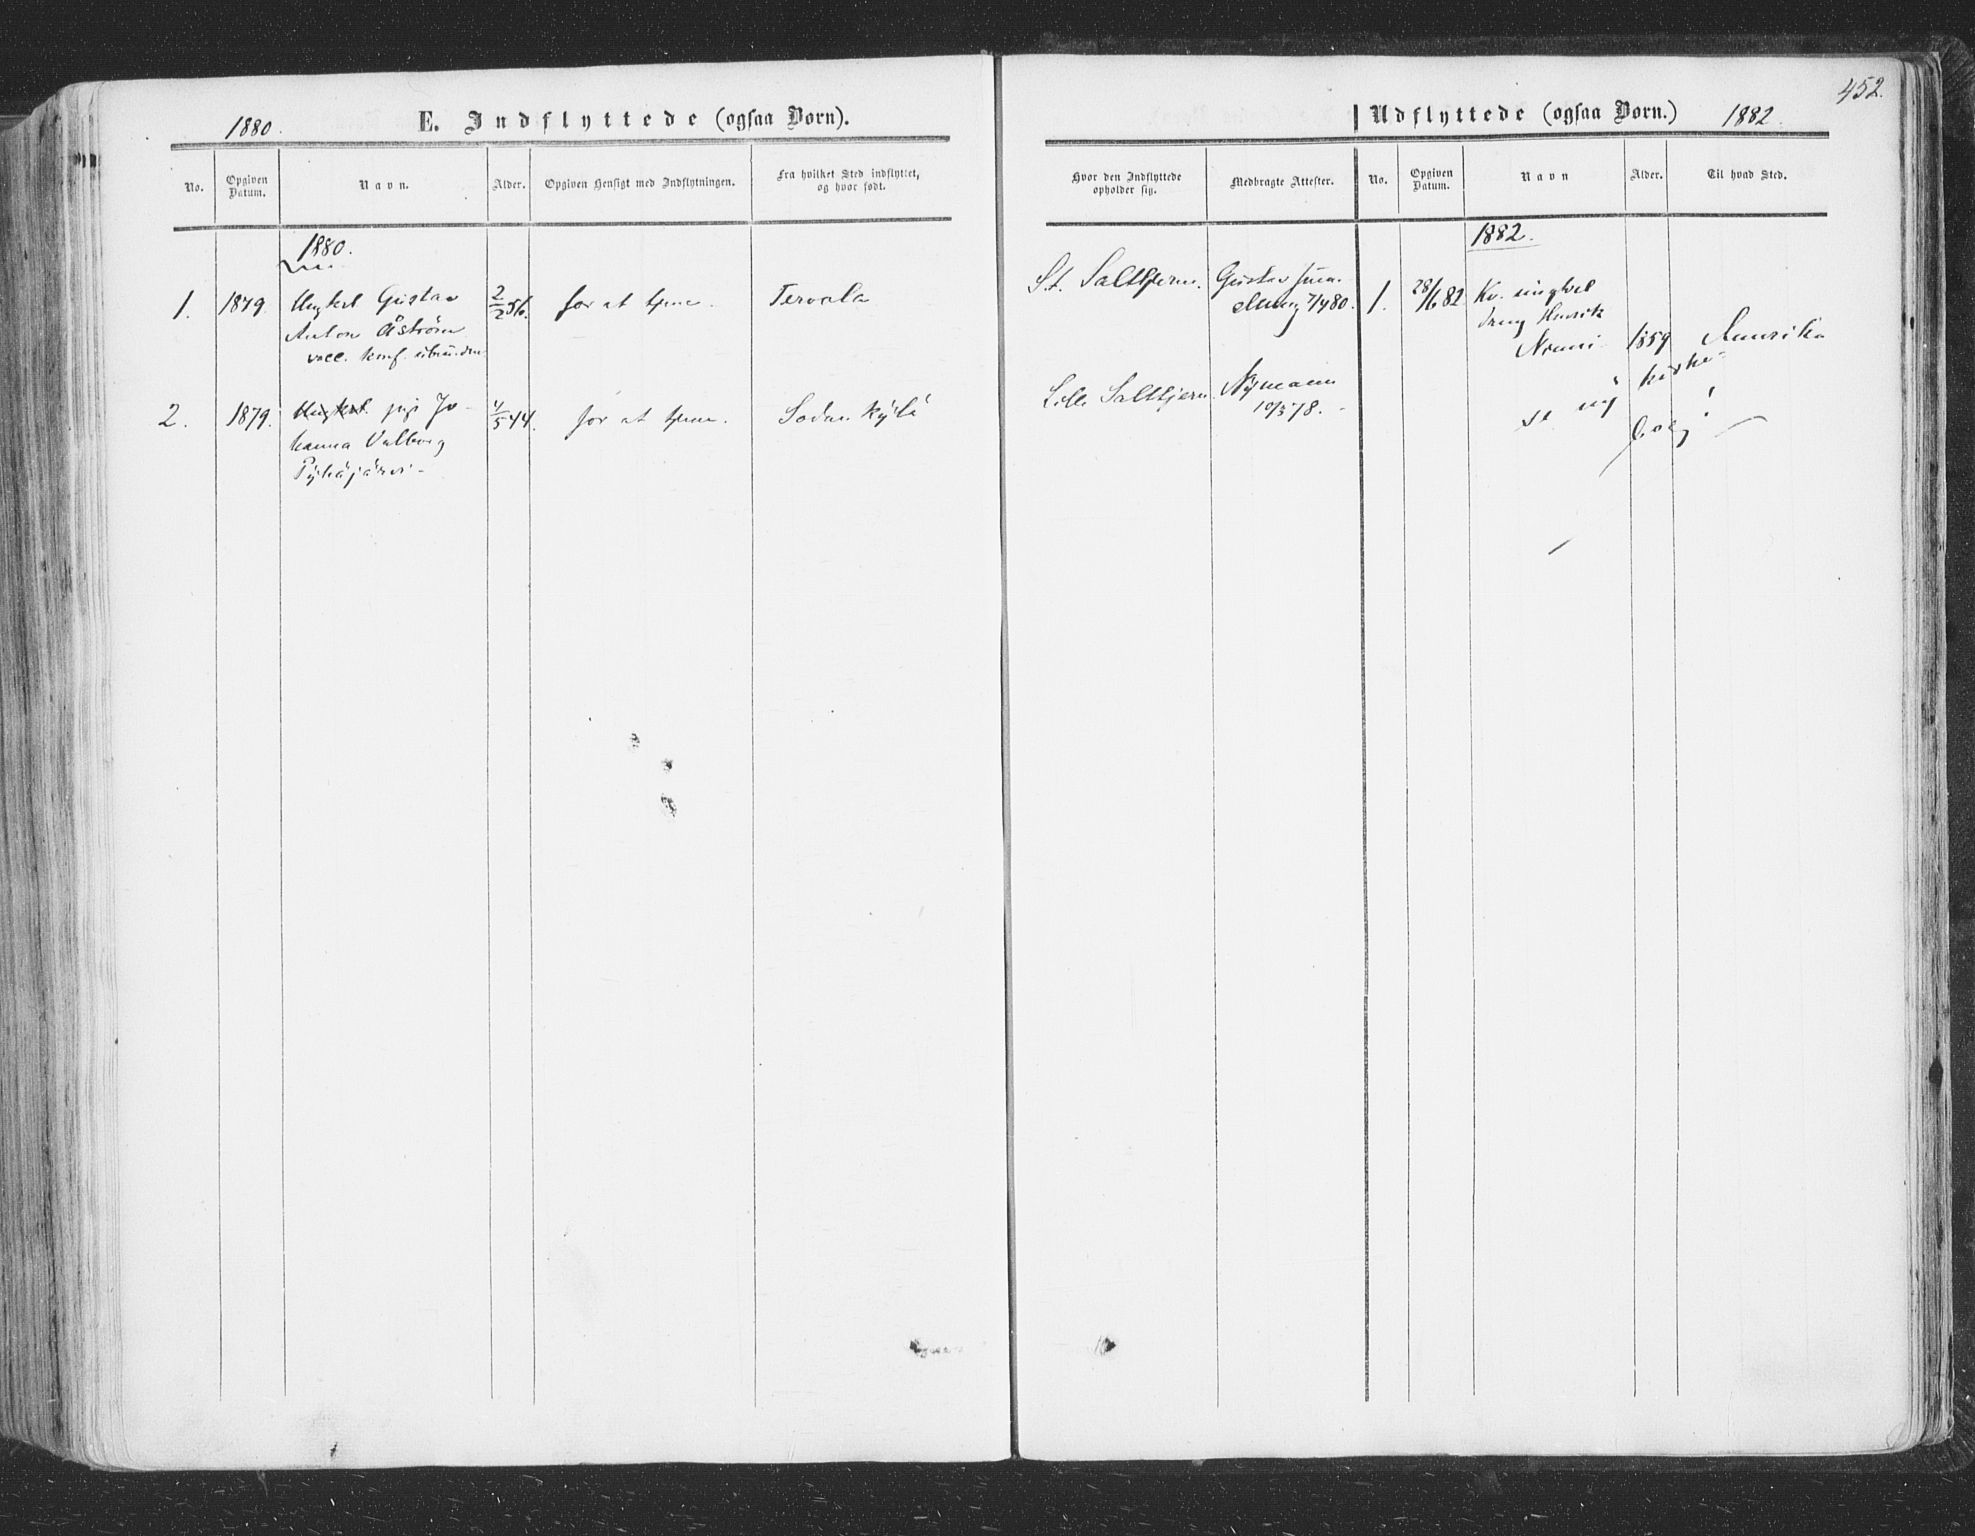 452.
1880.
E. Indflyttede (ogsaa Børn).
No.
Opgiven Datum.
Navn.
Alder.
Opgiven Hensigt med Indflytningen.
Fra hvilket Sted indflyttet, og hvor født.
1880.
1.
1879.
Ungkarl Gustav
Anton Åström
vacc. konf. ubunden
2/2 56.
for at tjene.
Tervola
2.
1879.
pige Jo-
hanna Valborg
Pyhäjärvi -
4/5 44.
for at tjene.
Sodankylä
Udflyttede (ogsaa Børn.)
1882.
Hvor den Indflyttede opholder sig.
Medbragte Attester.
No.
Opgiven Datum.
Navn
Alder.
Til hvad Sted.
1882.
St. Saltfjern.
Gustav
7/4 80.
Lille Saltfjern.
Nymann
10/5 78. -
1.
28/6 82
Kv. ungkarl
dreng Henrik
1859
Amerika
ny kirke
bog!